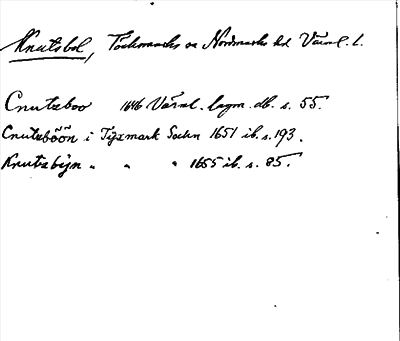 Knutsbol, Töckmarks o. Nordmarks hd Värml. l.
Cnutzboo 1646 Värml. lagm. db. s. 55.
Cnutzböön i Tyxmark Sochn 1651 ib. s. 193.
Knutzbÿn " " " 1655 ib. s. 85.